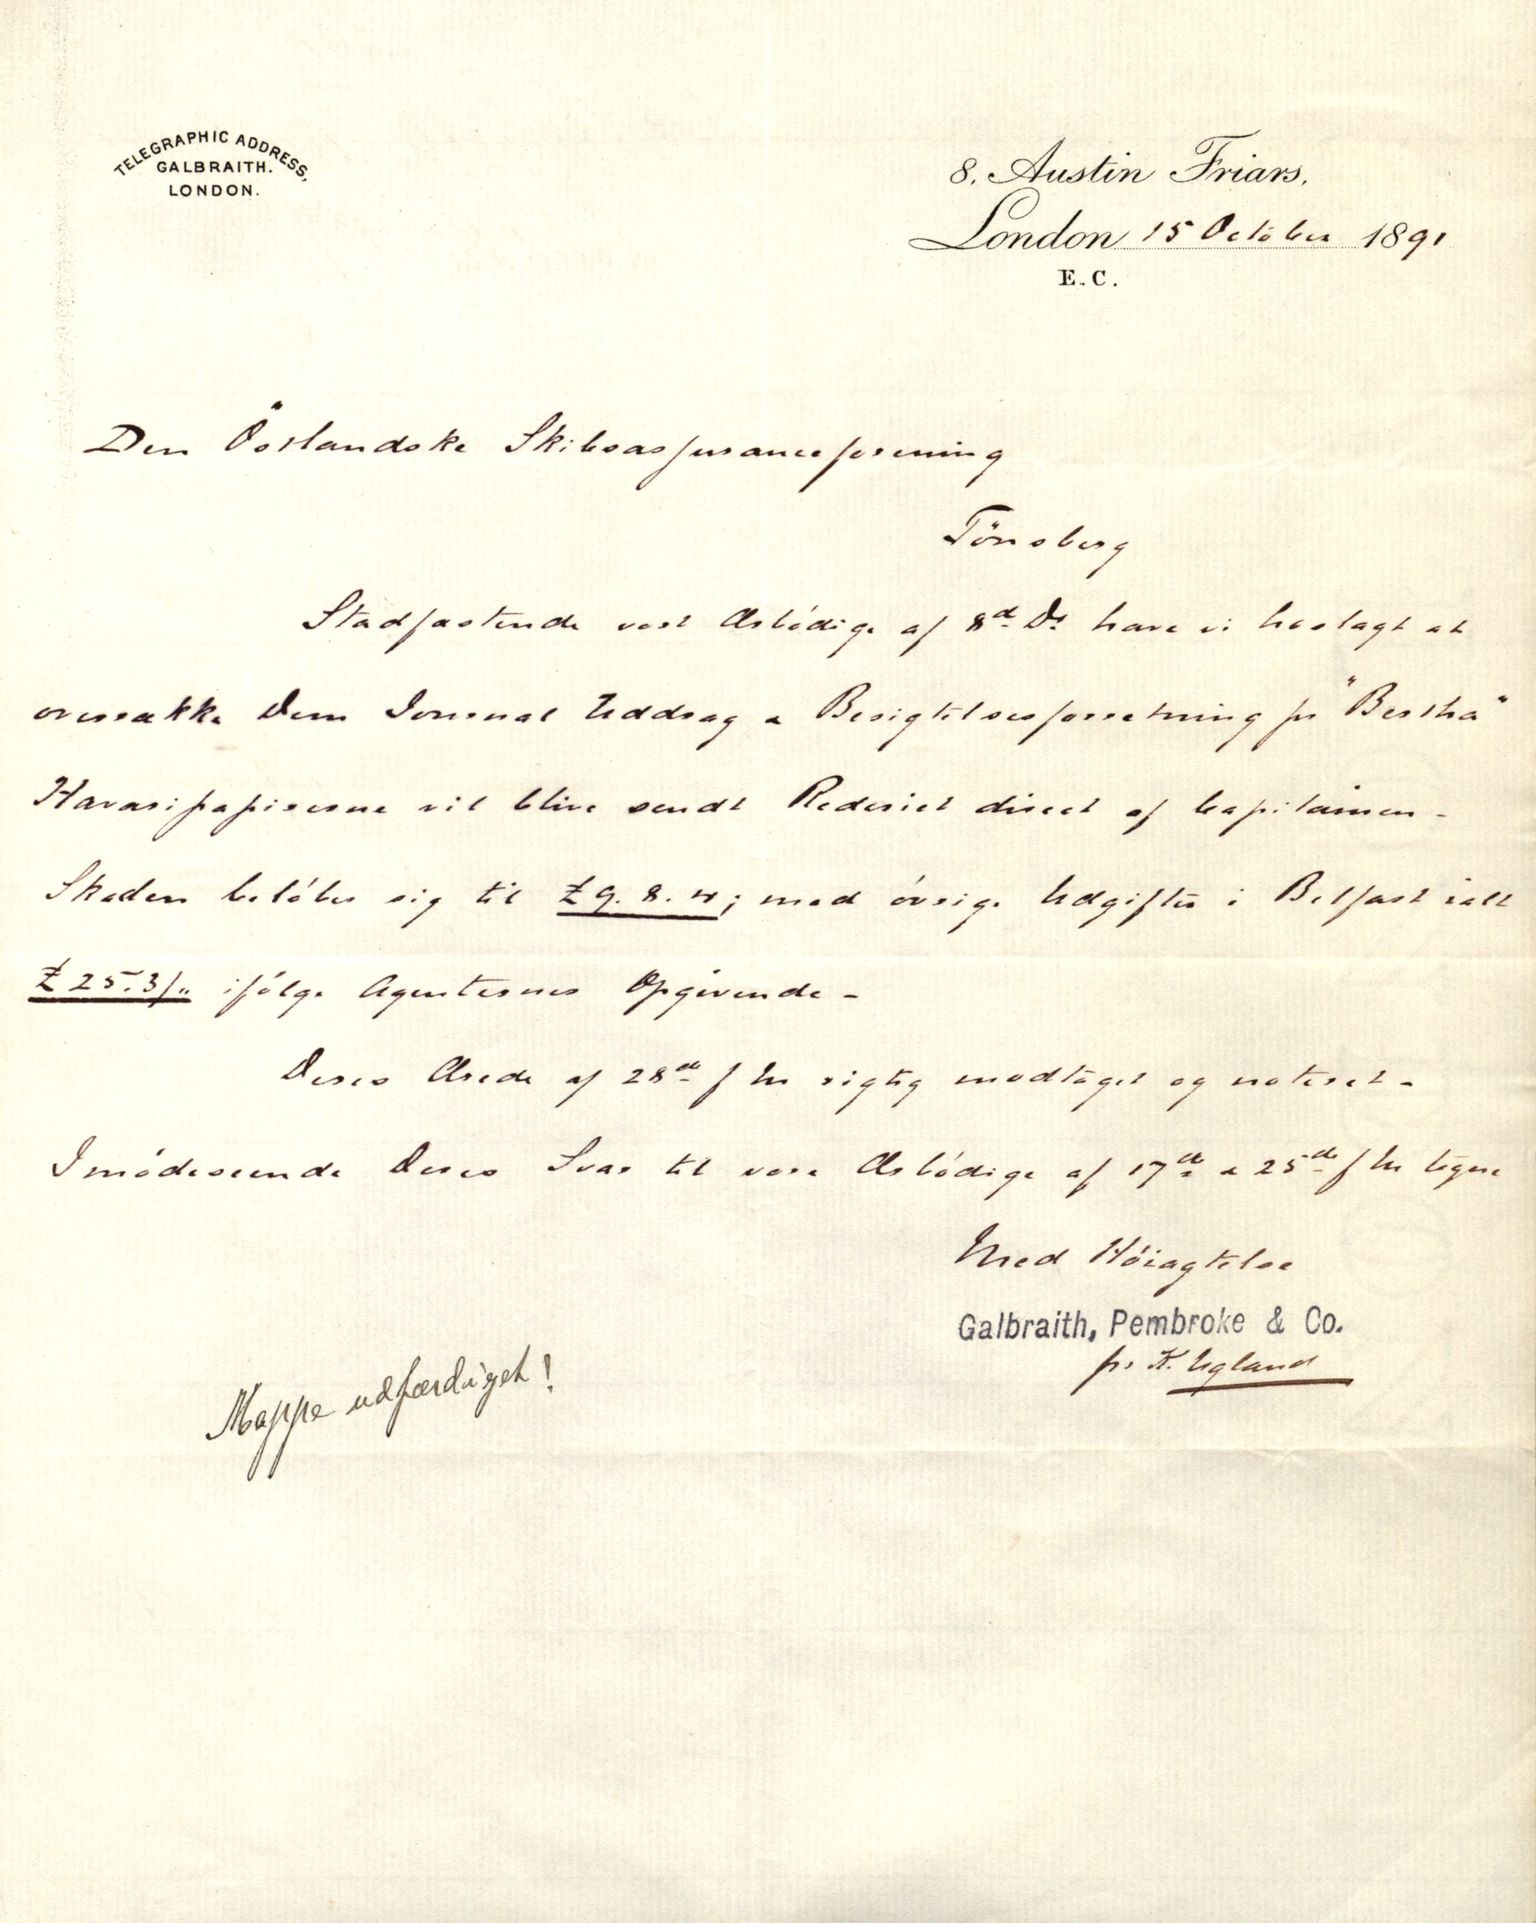 TELEGRAPHIC ADDRESS,
GALBRAITH.
LONDON.
8, Austin Friars,
London 15 October 1891
E.C.
Den Östlandske Skibsassuranceforening
Tönsberg
Stadfæstende vort Ærbödige af 8d. Ds. have vi herlagt at
overrække Dem Journal Uddrag & Besigtelsesforretning pr "Bertha"
Havaripapirerne vil blive sendt Rederiet direct af Capitainen -
Skaden belöber sig til £ 9. 8. 4; med övrige Udgifter i Belfast ialt
£ 25.3/" ifölge Agenternes Opgivende -
Deres Ærede af 28de f M rigtig modtaget og noteret -
Imödeseende Deres Svar til vore Ærbödige af 17de & 25de f M tegne
Med Höiagtelse
Galbraith, Pembroke & Co.
pr K. Ugland
Mappe udfærdiget!